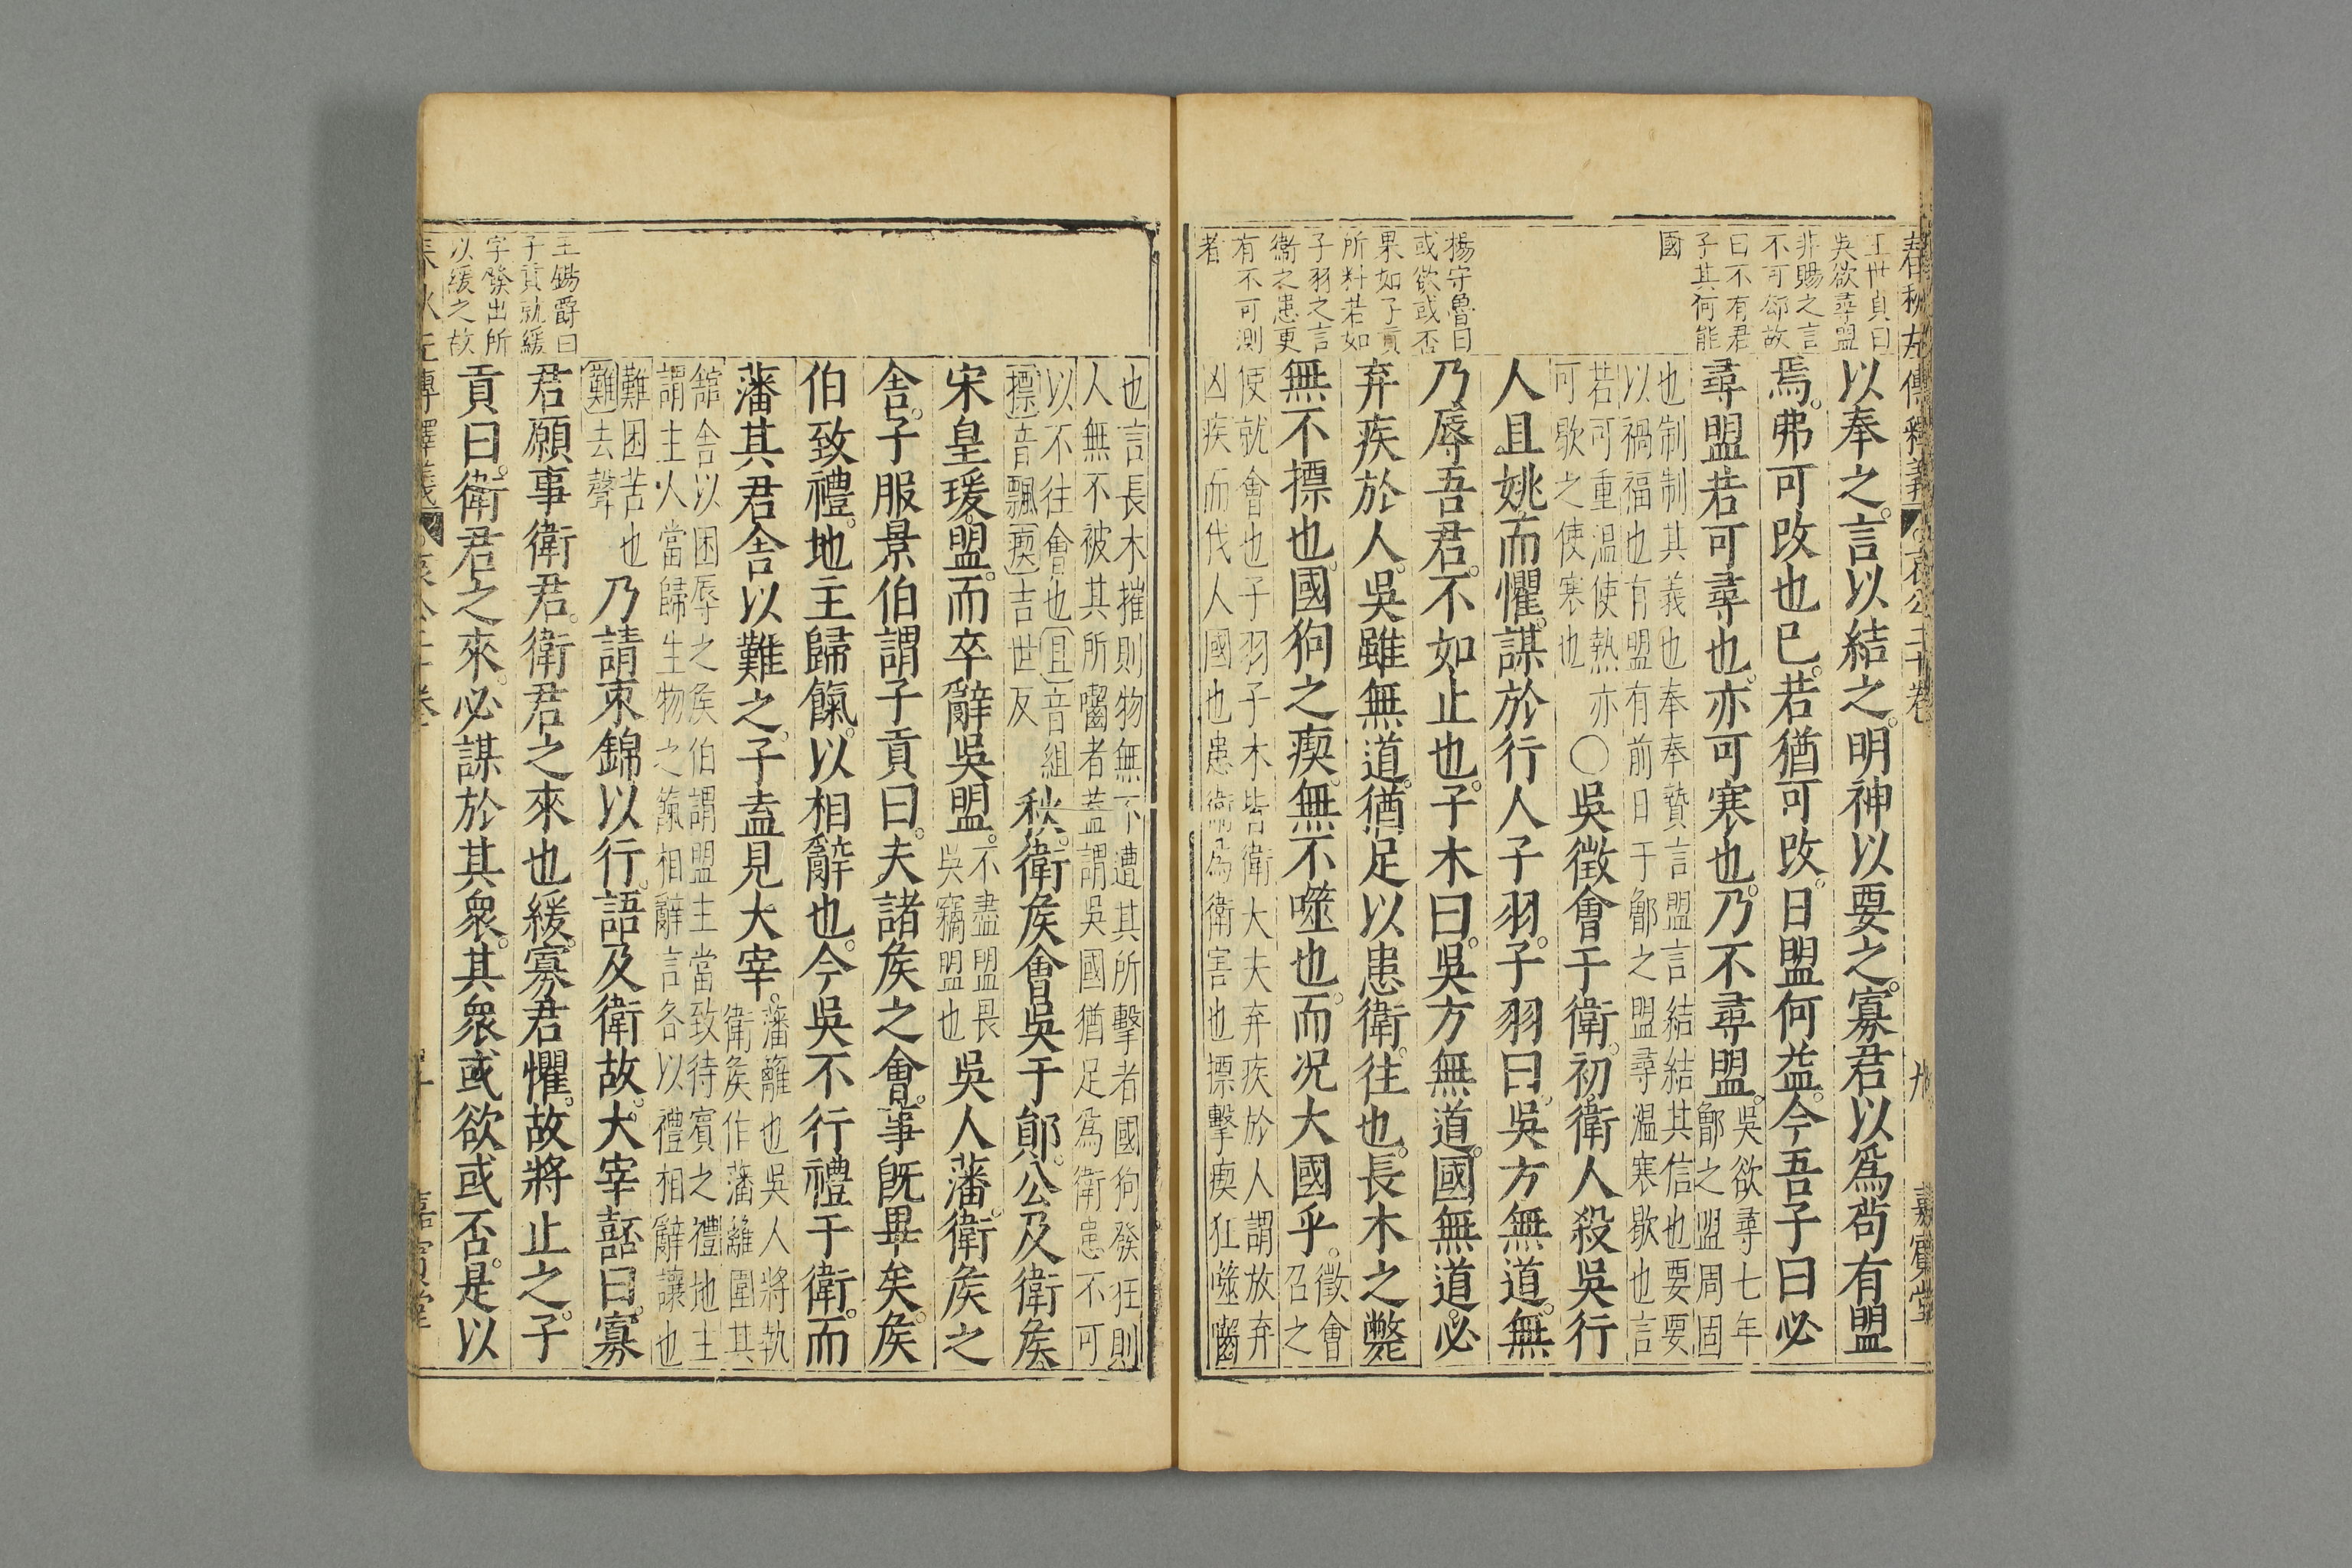 春秋左傳釋義 哀公三十卷 九 嘉賓堂
王世貞曰
吳欲尋盟
非賜之言
不可郤故
曰不有君
子其何能
國
楊守魯曰
或欲或否
果如子貢
所料若如
子羽之言
衞之患更
有不可測
者
以奉之。言以結之。明神以要之。寡君以爲苟有盟
焉。弗可改也已。若猶可改。日盟何益。今吾子曰必
尋盟。若可尋也。亦可寒也。乃不尋盟。
吳欲尋七年
鄫之盟周固
也制制其義也奉奉贄言盟言結結其信也要要
以禍福也有盟有前日于鄫之盟尋溫寒歇也言
若可重温使熱亦
可歇之使寒也
〇吳徵會于衛。初。衛人殺吳行
人且姚而懼。謀於行人子羽。子羽曰。吳方無道。無
乃辱吾君。不如止也。子木曰。吳方無道。國無道。必
弃疾於人。吳雖無道。猶足以患衛。往也。長木之斃
無不摽也。國狗之瘈。無不噬也。而况大國乎。
徵會
召之
便就會也子羽子木皆衛大夫弃疾於人謂放弃
凶疾而伐人國也患衛爲衛害也摽擊瘈狂噬嚙
也言長木摧則物無不遭其所擊者國狗發狂則
人無不被其所嚙者蓋謂吳國猶足爲衛患不可
以不往會也且音組
摽音飄瘈吉世反
秋。衛矦會吳于鄖。公及衛矦
宋皇瑗。盟。而卒辭吳盟。
不盡盟畏
吳竊盟也
吳人藩。衛矦之
舍。子服景伯謂子貢曰。夫諸矦之會。事旣畢矣。矦
伯致禮。地主歸餼。以相辭也。今吳不行禮于衛。而
藩其君舍以難之。子盍見大宰。
藩籬也吳人將執
衛矦作藩籬圍其
舘舍以困辱之矦伯謂盟主當致待賓之禮地主
謂主人當歸生物之餼相辭言各以禮相辭讓也
難困苦也
難去聲
乃請束錦以行。語及衛故。大宰嚭曰。寡
君願事衛君。衛君之來也緩。寡君懼。故將止之。子
貢曰。衛君之來。必謀於其衆。其衆或欲或否。是以
王錫爵曰
子貢就緩
字發出所
以緩之故